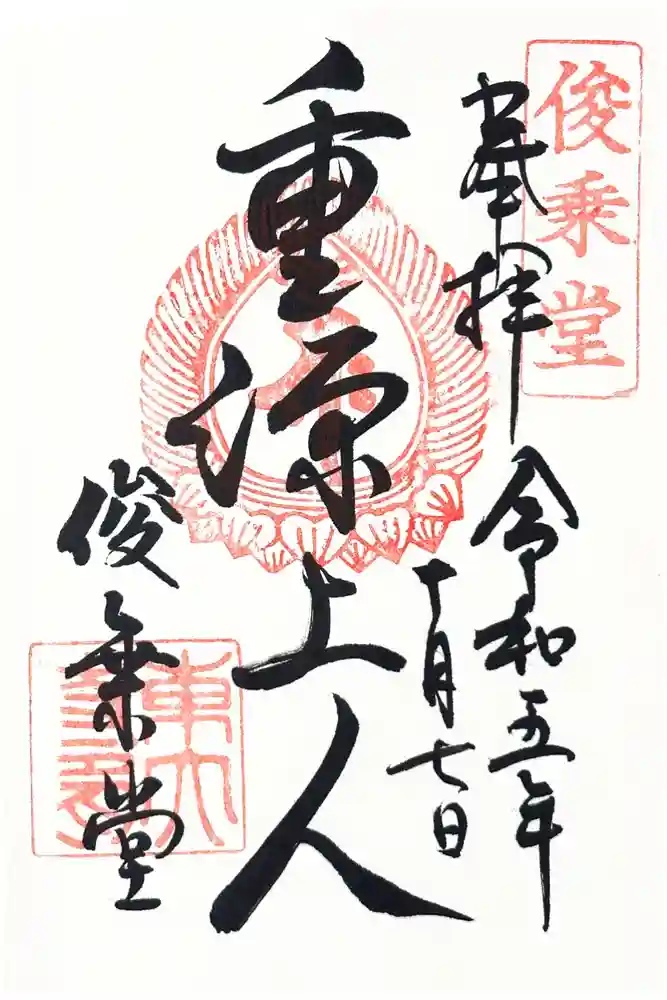 俊乗堂
奉拝
令和五年
十月七日
重源上人
俊乗堂
東大